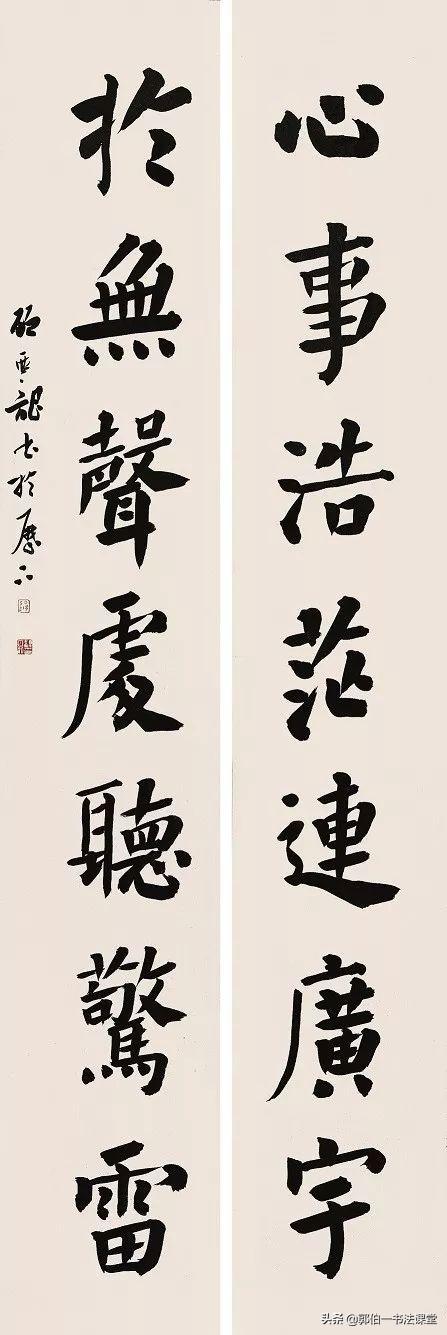 心事浩茫連廣宇
於無聲處聽驚雷
顧亞龍书於歷下
头条 @郭伯一书法课堂